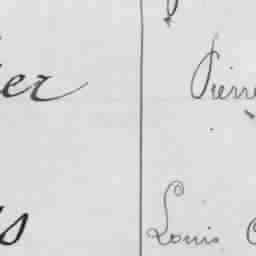 er Pierre
s Louis